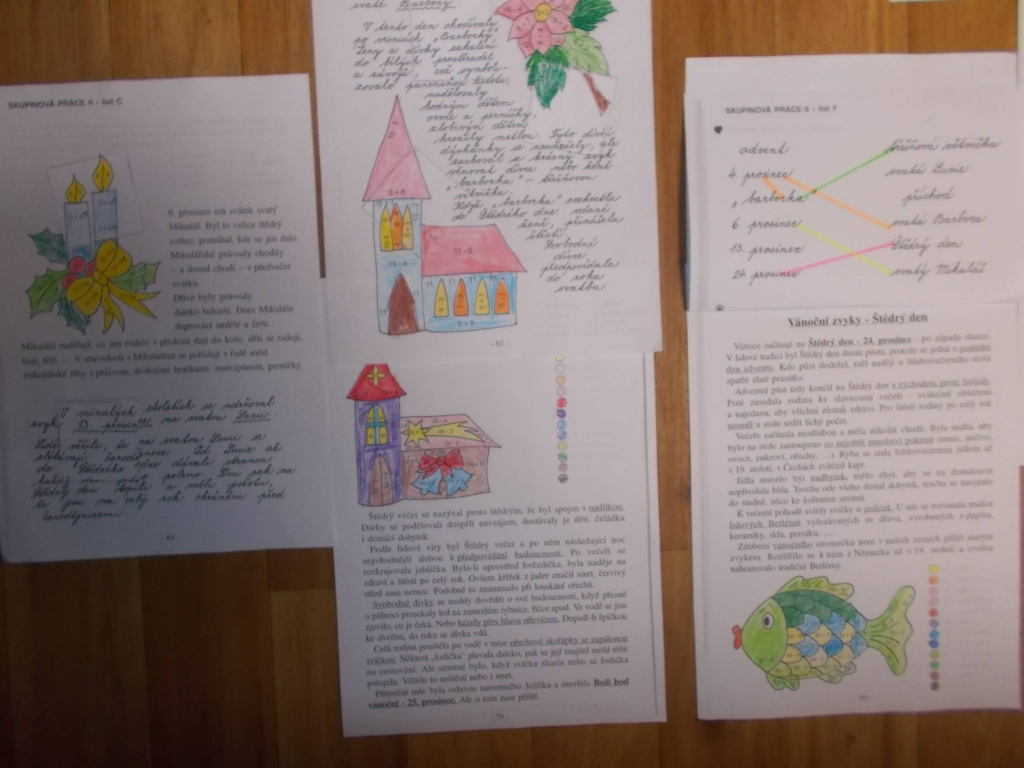 SKUPINOVÁ PRÁCE 6 - list C
6. prosince má svátek svatý
Mikuláš. Byl to velice štědrý
světec, pomáhal, kde se jen dalo.
Mikulášské průvody chodily
– a dosud chodí – v předvečer
svátku.
Dříve byly průvody
daleko bohatší. Dnes Mikuláše
doprovází andělé a čerti.
Mikuláš nadělují, co jim rodiče v předsíni dají do koše, děti se radují,
bojí, těší, ... V souvislosti s Mikulášem se pořádají v řadě měst
mikulášské trhy s pečivem, drobnými hračkami, marcipánem, perníčky.
V minulých stoletích se udržoval
zvyk 13. prosince na svatou Lucii.
Lidé věřili, že na svatou Lucii se
do Štědrého dne dávali stranou
každý den poleno. Tím pak na
Štědrý den topili a měli jistotu,
že jsou na celý rok chráněni před
čarodějnicemi.
svaté Barbory.
V tento den chodívaly
po vesnicích "Barborky".
Ženy a dívky zahalené
do bílých prostěradel
a závojů, což symboli-
zovalo panenskou čistotu,
nadělovaly
hodným dětem
ovoce a perníčky,
zlobivým dětem
hrozily metlou. Tyto dívčí
zachoval se krásný zvyk
věnovat dívce nebo ženě
"barborku" - třešňovou
větvičku.
Když "barborka" rozkvetla
do Štědrého dne vdané
ženě, přinášela
štěstí.
Svobodné
dívce
předpovídala
do roka
svatbu.
- 62 -
Štědrý večer se nazýval proto štědrým, že byl spojen s nadílkou.
Dárky se podělovali dospělí navzájem, dostávaly je děti, čeládka
i domácí dobytek.
Podle lidové víry byl Štědrý večer a po něm následující noc
nejvhodnější dobou k předpovídání budoucnosti. Po večeři se
rozkrajovala jablíčka. Byla-li uprostřed hvězdička, byla naděje na
zdraví a štěstí po celý rok. Ovšem křížek z jader značil smrt, červivý
střed zase nemoc. Podobně to znamenalo při louskání ořechů.
Svobodné dívky se mohly dovědět o své budoucnosti, když přesně
o půlnoci prosekaly led na zamrzlém rybníce, říčce apod. Ve vodě se jim
zjevilo, co je čeká. Nebo házely přes hlavu střevícem. Dopadl-li špičkou
ke dveřím, do roka se dívka vdá.
Celá rodina pouštěla po vodě v míse ořechové skořápky se zapálenou
svíčkou. Některá „lodička" plavala daleko, pak se její majitel mohl těšit
na cestování. Ale smutné bylo, když svíčka zhasla nebo se lodička
potopila. Věštilo to neštěstí nebo i smrt.
Půlnoční mše byla oslavou narozeného Ježíška a otevřela Boží hod
vánoční - 25. prosinec. Ale o tom zase příště.
- 70 -
SKUPINOVÁ PRÁCE 6 - list F
advent
třešňová větvička
4. prosinec
svatá Lucie
"barborka"
příchod
6. prosinec
svatá Barbora
13. prosinec
Štědrý den
24. prosinec
svatý Mikuláš
Vánoční zvyky - Štědrý den
Vánoce začínají na Štědrý den - 24. prosince - po západu slunce.
V lidové tradici byl Štědrý den dnem půstu, protože se jedná o poslední
den adventu. Kdo půst dodržel, měl naději u štědrovečerního stolu
spatřit zlaté prasátko.
Adventní půst tedy končil na Štědrý den s východem první hvězdy.
Poté zasedala rodina ke slavnostní večeři - svátečně oblečená
a najednou, aby všichni zůstali zdraví. Pro štěstí rodiny po celý rok
nesměl u stolu sedět lichý počet.
Večeře začínala modlitbou a měla několik chodů. Byla snaha, aby
bylo na stole zastoupeno co největší množství pokrmů (maso, pečivo,
ovoce, cukroví, ořechy, ...) Ryba se stala štědrovečerním jídlem až
v 19. století, v Čechách zvítězil kapr.
Jídla muselo být nadbytek, mělo zbýt, aby se na domácnost
nepřivolala bída. Trochu ode všeho dostal dobytek, trochu se nasypalo
do studně, něco ke kořenům stromů.
K večerní pohodě svítily svíčky u jesliček.
lidových Betlémů vyřezávaných ze dřeva, vyrobených z papíru,
keramiky, skla, perníku, ....
Zdobení vánočního stromečku není v našich zemích příliš starým
zvykem. Rozšířilo se k nám z Německa až v 19. století a zvolna
nahrazovalo tradiční Betlémy.